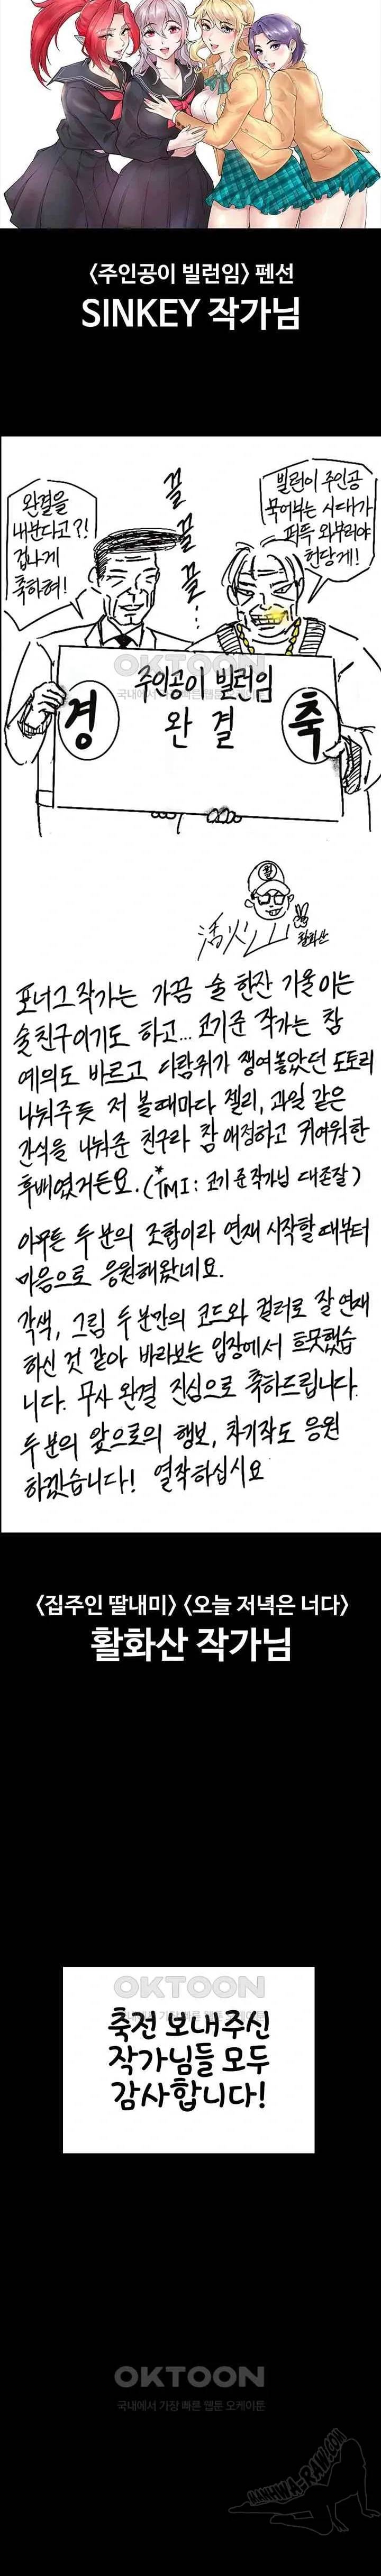 <주인공이 빌런임> 펜선
SINKEY 작가님
완결을
내분다고?!
겁나게
축하혀!
끌
끌
끌...
빌런이 주인공
묵어부는 시대가
퍼뜩 와부러야
헌당게!
OKTOON
국내에서 가장 빠른 웹툰 오케이툰
경
주인공이 빌런임
완결
축
활
活火山
활화산
포너그 작가는 가끔 술 한잔 기울이는
술친구이기도 하고... 코기준 작가는 참
예의도 바르고 다람쥐가 쟁여놓았던 도토리
나눠주듯 저 볼때마다 젤리, 과일 같은
간식을 나눠준 친구라 참 애정하고 귀여워한
후배였거든요. (*TMI: 코기준작가님 대존잘)
아무튼 두 분의 조합이라 연재 시작할때부터
마음으로 응원해왔네요.
각색, 그림 두 분간의 코드와 컬러로 잘 연재
하신 것 같아 바라보는 입장에서 흐뭇했습
니다. 무사 완결 진심으로 축하드립니다.
두 분의 앞으로의 행보, 차기작도 응원
하겠습니다! 열작하십시요
<집주인 딸내미> <오늘 저녁은 너다>
활화산 작가님
OKTOON
축전 보내주신
작가님들 모두
감사합니다!
OKTOON
국내에서 가장 빠른 웹툰 오케이툰
MANHWA-RAW.COM